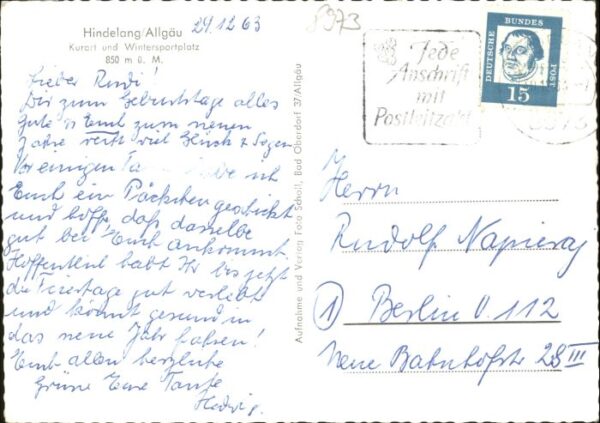 Hindelang/Allgäu
Kurort und Wintersportplatz
850 m ü. M.
29.12.63
8973
Lieber Rudi!
Dir zum Geburtstage alles
Gute u. Euch zum neuen
Jahre recht viel Glück & Segen
Vor einigen habe ich
Euch ein Päckchen geschickt
und hoffe, daß dasselbe
gut bei Euch ankommt.
Hoffentlich habt Ihr bis jetzt
die Feiertage gut verlebt
und könnt gesund in
das neue Jahr fahren!
Euch allen herzliche
Grüße Eure Tante
Hedwig.
Aufnahme und Verlag Foto Scholl, Bad Oberdorf 37/Allgäu
Jede
Anschrift
mit
Postleitzahl
DEUTSCHE BUNDESPOST
15
8973
Herrn
Rudolf Napieraj
1 Berlin O. 112
Neue Bahnhofstr 28 III